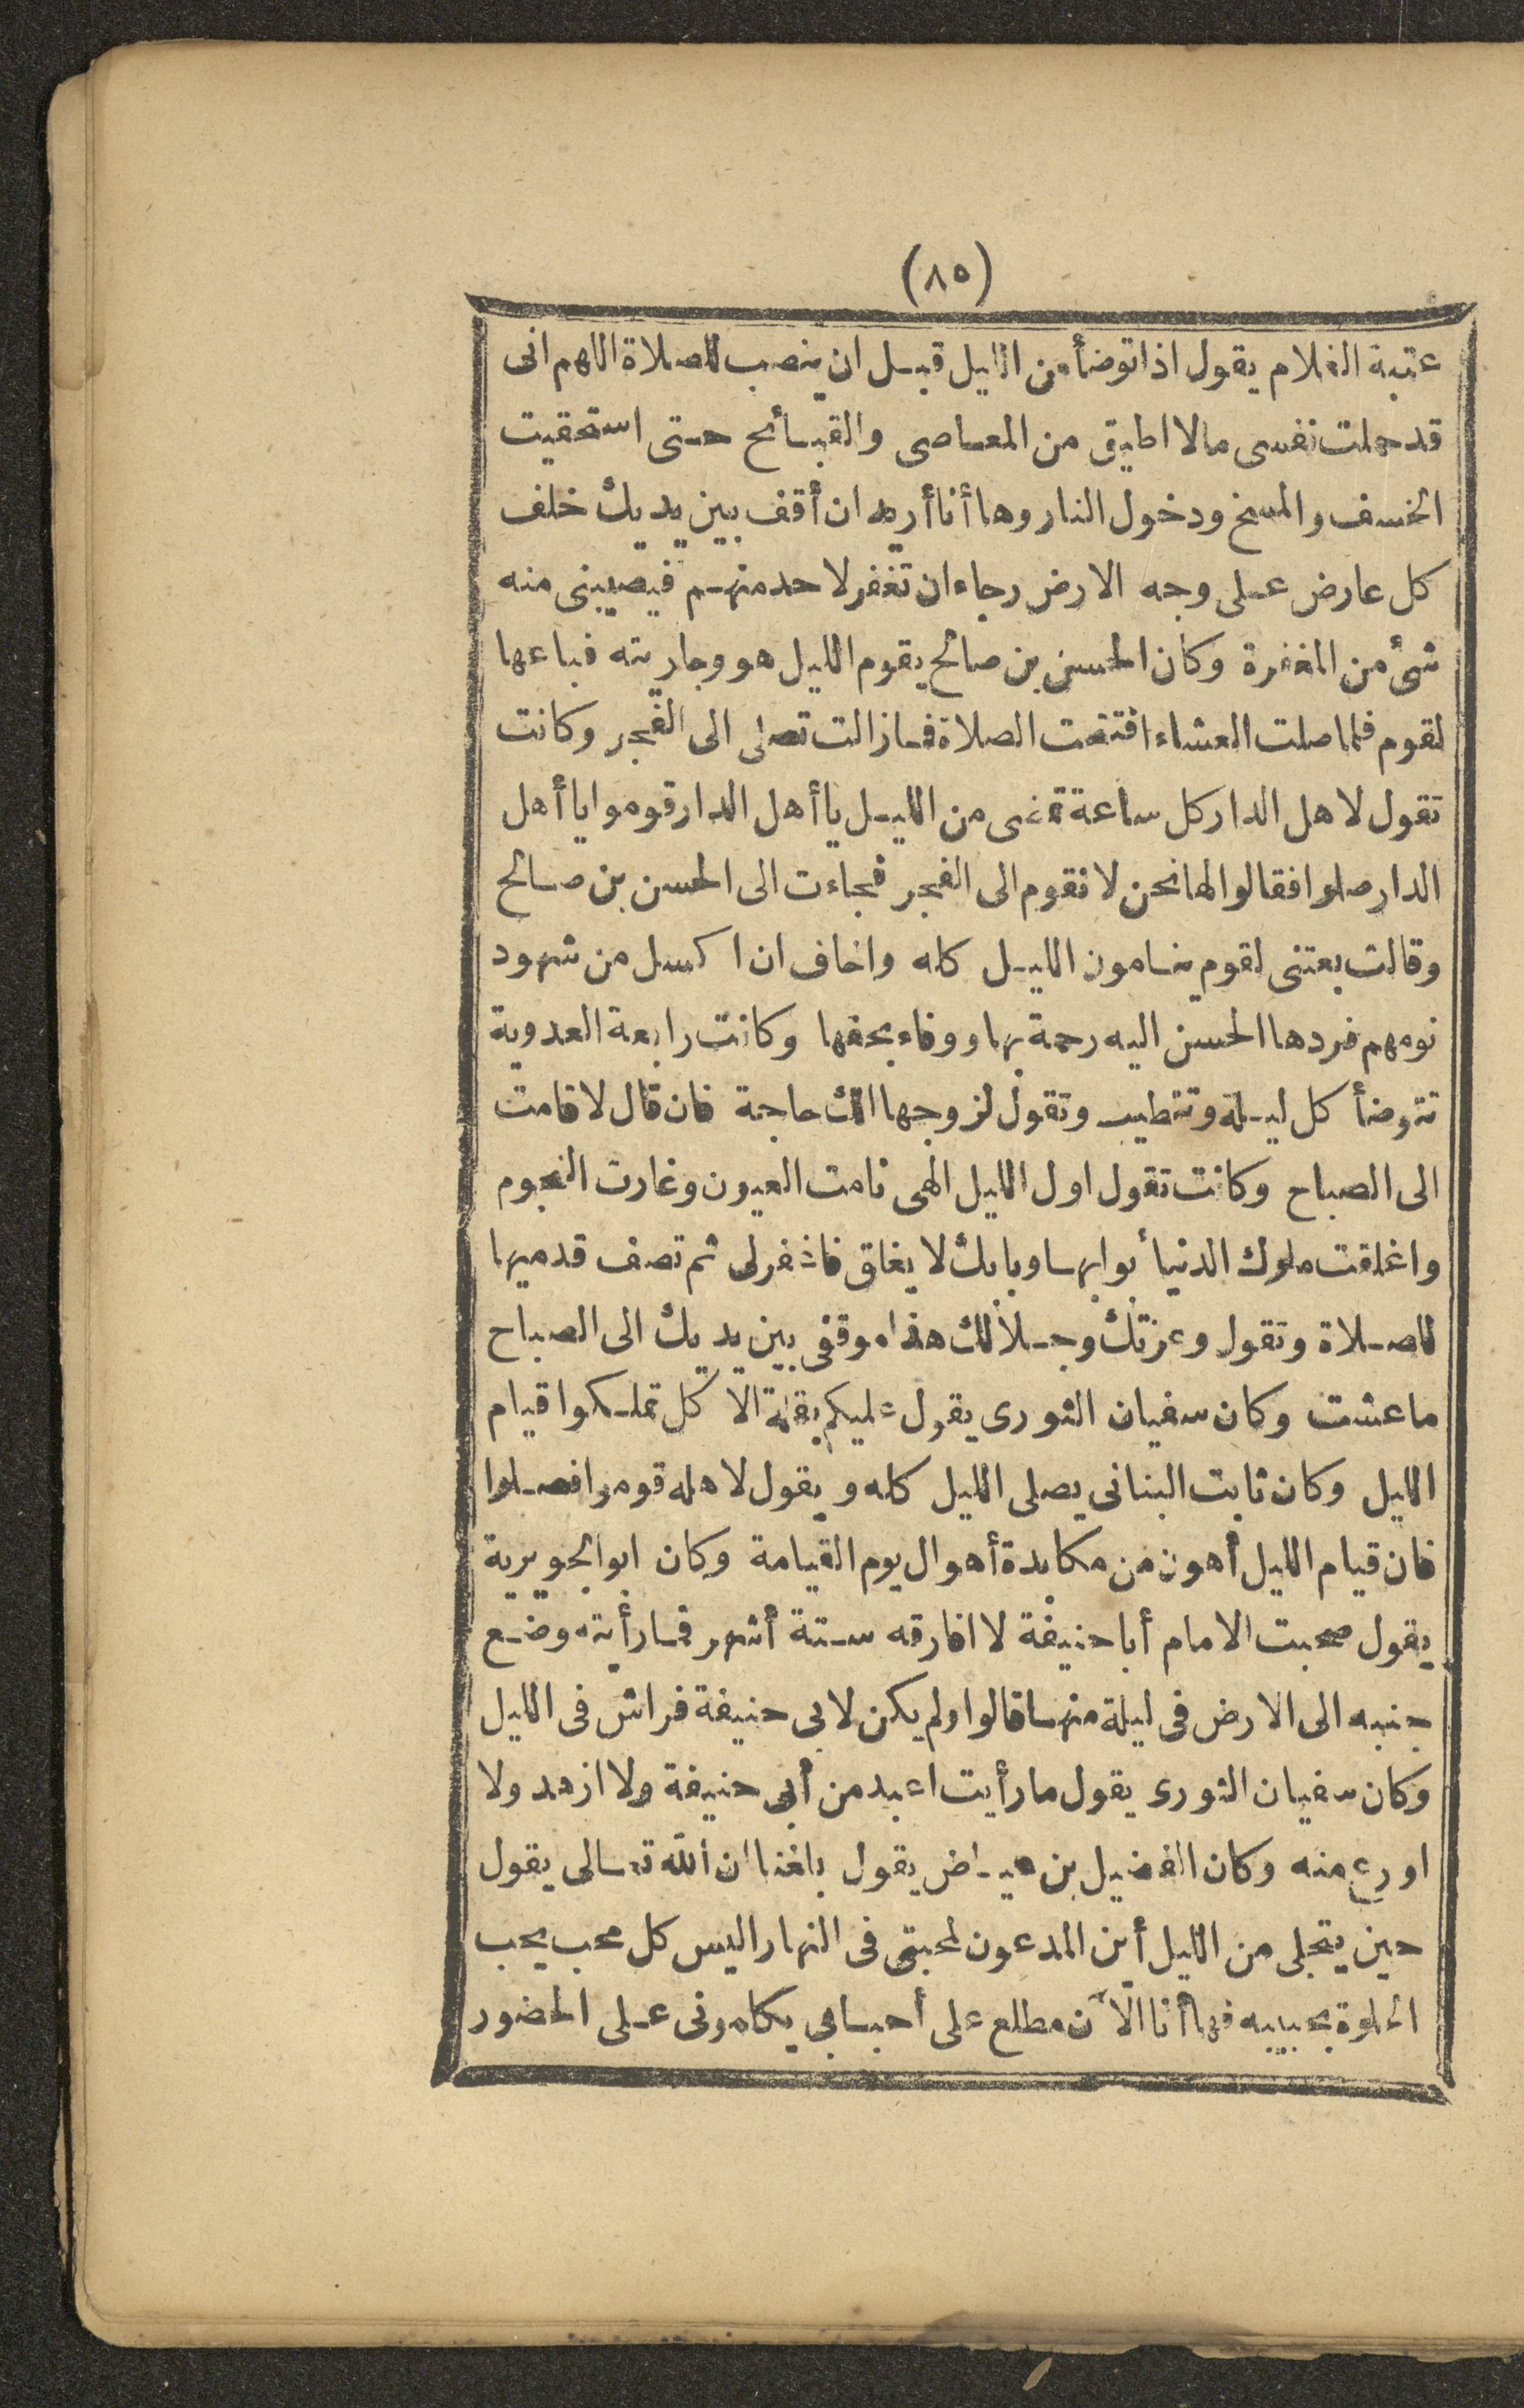 (٨٥)
عتبة الغلام يقول اذا توضأ من الليل قبل ان ينصب للصلاة اللهم انى
قد حملت نفسى مالا اطيق من المعاصى والقبائح حتى استحقيت
الخسف والمسخ ودخول النار وها أنا أريد ان أقف بين يديك خلف
كل عارض على وجه الارض رجاء ان تغفر لاحد منهم فيصيبنى منه
شئ من المغفرة وكان الحسن بن صالح يقوم الليل هو وجاريته فباعها
لقوم فلما صلت العشاء افتتحت الصلاة فما زالت تصلى الى الفجر وكانت
تقول لاهل الدار كل ساعة تمضى من الليل يا أهل الدار قوموا يا أهل
الدار صلوا فقالوا لها نحن لا نقوم الى الفجر فجاءت الى الحسن بن صالح
وقالت بعتنى لقوم ينامون الليل كله واخاف ان اكسل من شهود
نومهم فردها الحسن اليه رحمة بها ووفاء بحقها وكانت رابعة العدوية
تتوضأ كل ليلة وتتطيب وتقول لزوجها الك حاجة فان قال لا قامت
الى الصباح وكانت تقول اول الليل الهى نامت العيون وغارت النجوم
واغلقت ملوك الدنيا أبوابها وبابك لا يغلق فاغفرلى ثم تصف قدميها
للصلاة وتقول وعزتك وجلالك هذا موقفى بين يديك الى الصباح
ما عشت وكان سفيان الثورى يقول عليكم بقلة الاكل تملكوا قيام
الليل وكان ثابت البنانى يصلى الليل كله ويقول لاهله قوموا فصلوا
فان قيام الليل أهون من مكابدة أهوال يوم القيامة وكان ابوالجويرية
يقول صحبت الامام أبا حنيفة لا افارقه ستة أشهر فما رأيته وضع
جنبه الى الارض فى ليلة منها قالوا ولم يكن لابى حنيفة فراش فى الليل
وكان سفيان الثورى يقول ما رأيت اعبد من أبى حنيفة ولا ازهد ولا
اورع منه وكان الفضيل بن عياض يقول بلغنا ان الله تعالى يقول
حين يتجلى من الليل أين المدعون لمحبتى فى النهار اليس كل محب يحب
الخلوة بحبيبه فها أنا الآن مطلع على أحبابى يكلمونى على الحضور